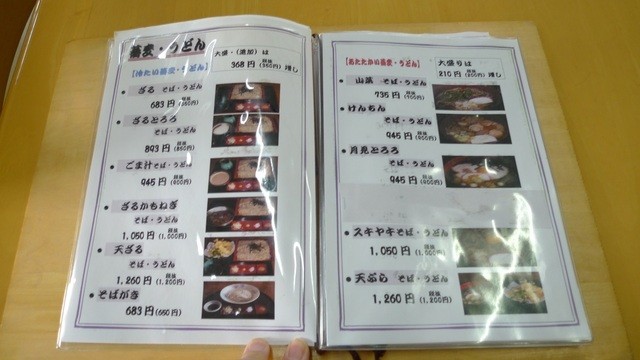 蕎麦・うどん
大盛・(追加)は
368円 税抜(350円)増し
【冷たい蕎麦・うどん】
・ざる そば・うどん
683円 税抜(650円)
・ざるとろろ
そば・うどん
893円 税抜(850円)
・ごま汁そば・うどん
945円 税抜(900円)
・ざるかもねぎ
そば・うどん
1,050円 税抜(1,000円)
・天ざる
そば・うどん
1,260円 税抜(1,200円)
・そばがき
683円(650円)
【あたたかい蕎麦・うどん】
大盛りは
210円 税抜(200円)増し
・山菜 そば・うどん
735円 税抜(700円)
・けんちん
そば・うどん
945円 税抜(900円)
・月見とろろ
そば・うどん
945円 税抜(900円)
・スキヤキそば・うどん
1,050円 税抜(1,000円)
・天ぷら そば・うどん
1,260円 税抜(1,200円)